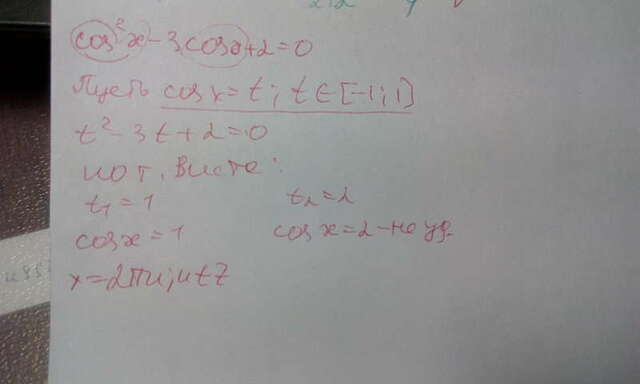 cos²x - 3cosx + 2 = 0
Пусть cosx = t; t ∈ [-1; 1]
t² - 3t + 2 = 0
по т. Виета:
t₁ = 1 t₂ = 2
cosx = 1 cosx = 2 - не уд.
x = 2πn; n ∈ Z